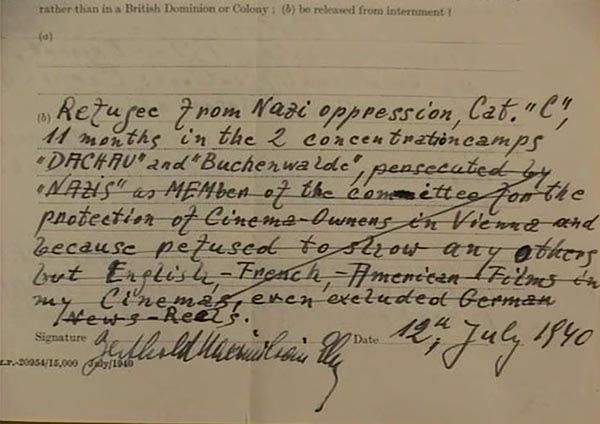 rather than in a British Dominion or Colony ; (b) be released from internment !
(a)
(b) Refugee from Nazi oppression, Cat. "C",
11 months in the 2 concentrationcamps
"DACHAU" and "Buchenwalde", persecuted by
"NAZIS" as MEMber of the committee for the
protection of Cinema-Owners in Vienna and
because refused to show any others
but English,-French,-American-Films in
my Cinemas, even excluded German
News-Reels.
Signature Date 12th, July 1940
20954/15,000 July/1940